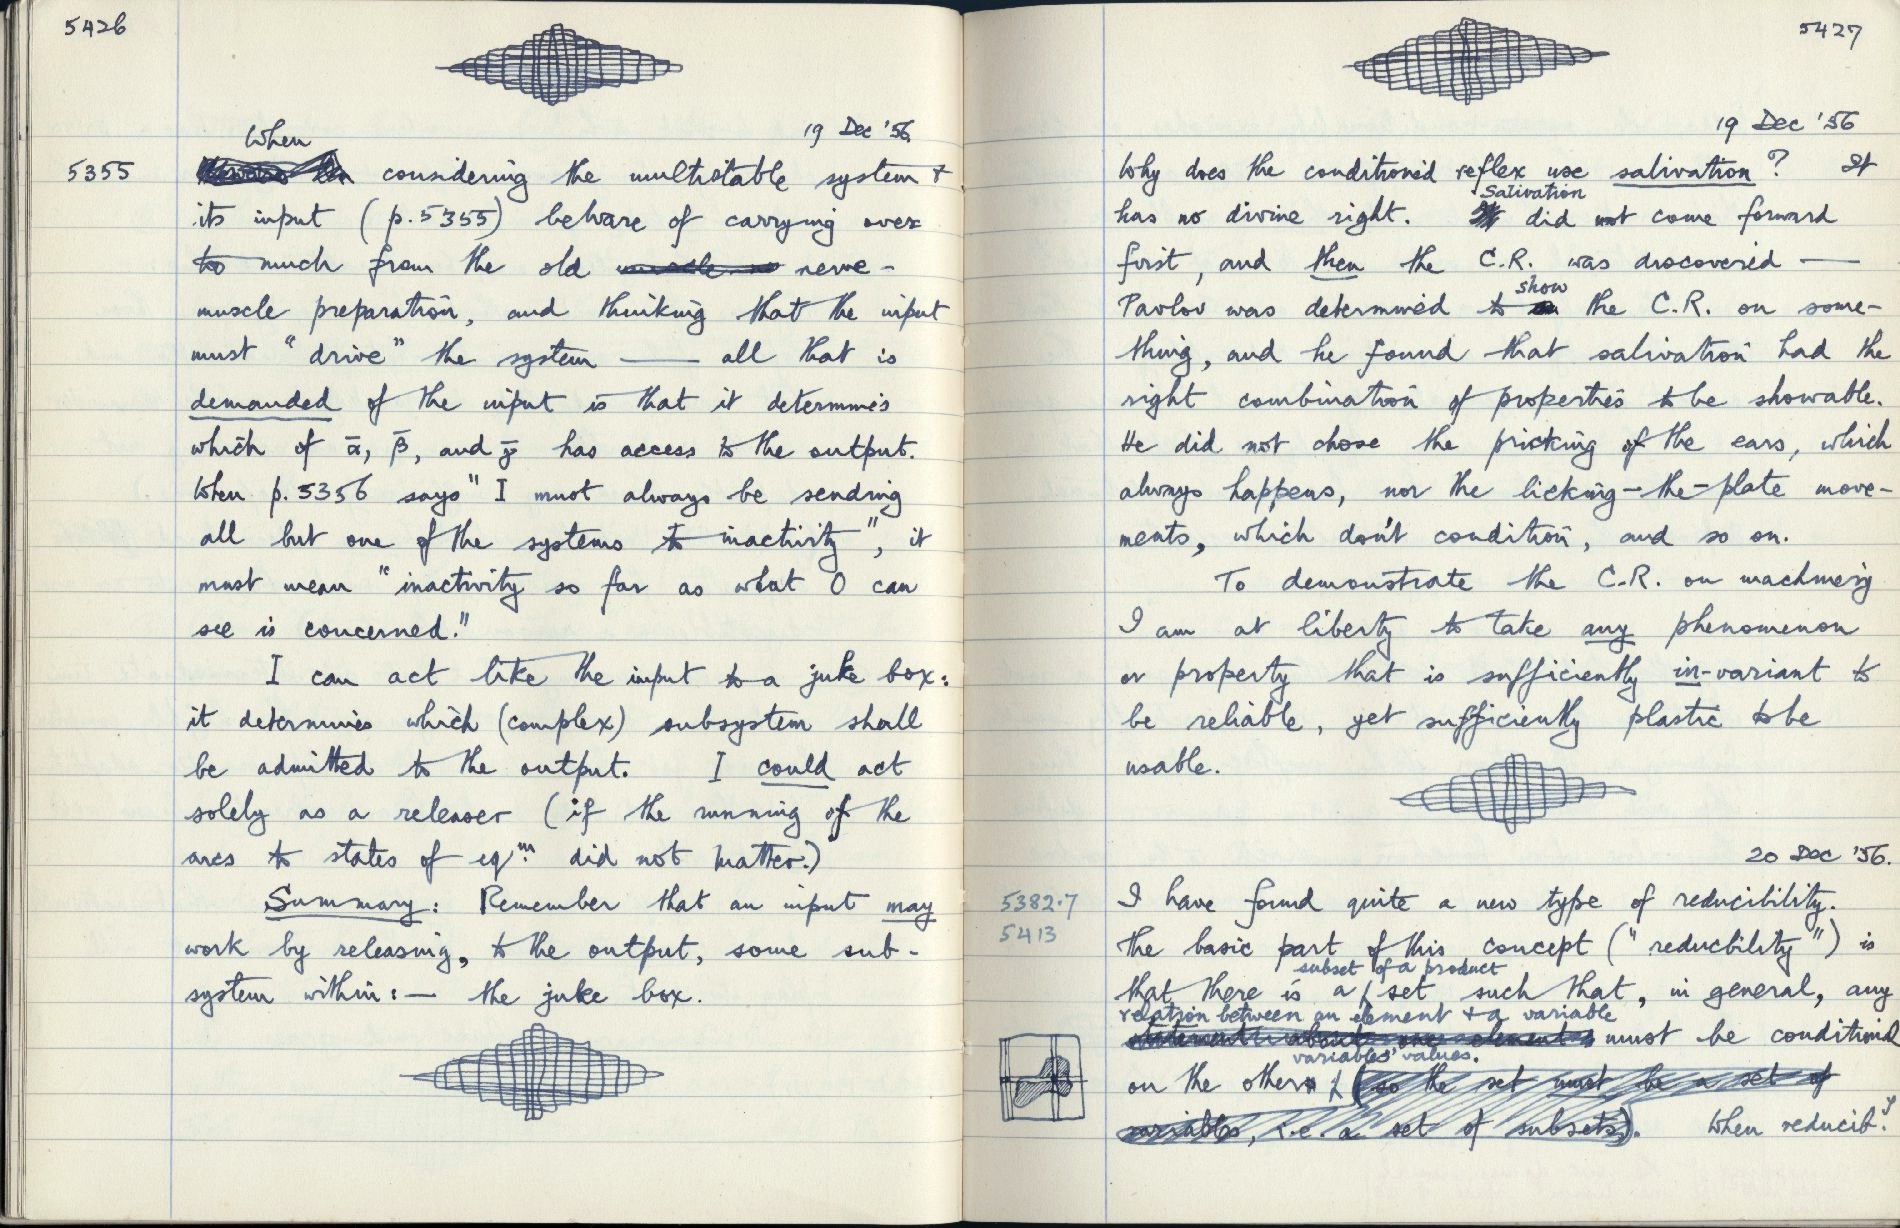 5426
19 Dec '56
When
5355
considering the multistable system +
its input (p.5355) beware of carrying over
to much from the old nerve-
muscle preparation, and thinking that the input
must "drive" the system —— all that is
demanded of the input is that it determines
which of ᾱ, β̄, and γ̄ has access to the output.
When p.5356 says "I must always be sending
all but one of the systems to inactivity", it
must mean "inactivity so far as what O can
see is concerned."
I can act like the input to a juke box:
it determines which (complex) subsystem shall
be admitted to the output. I could act
solely as a releaser (if the running of the
arcs to states of eqᵐ did not matter.)
Summary: Remember that an input may
work by releasing, to the output, some sub-
system within:— the juke box.
5427
19 Dec '56
Why does the conditioned reflex use salivation? It
has no divine right. Salivation did not come forward
first, and then the C.R. was discovered ——
Pavlov was determined to show the C.R. on some-
thing, and he found that salivation had the
right combination of properties to be showable.
He did not chose the pricking of the ears, which
always happens, nor the licking-the-plate move-
ments, which don't condition, and so on.
To demonstrate the C.R. on machinery
I am at liberty to take any phenomenon
or property that is sufficiently in-variant to
be reliable, yet sufficiently plastic to be
usable.
20 Dec '56.
5382.7
5413
I have found quite a new type of reducibility.
The basic part of this concept ("reducibility") is
subset of a product
that there is a set such that, in general, any
relation between an element + a variable
statement about one element s must be conditional
variables' values.
on the others (so the set must be a set of
variables, i.e. a set of subsets). When reducib.ʸ